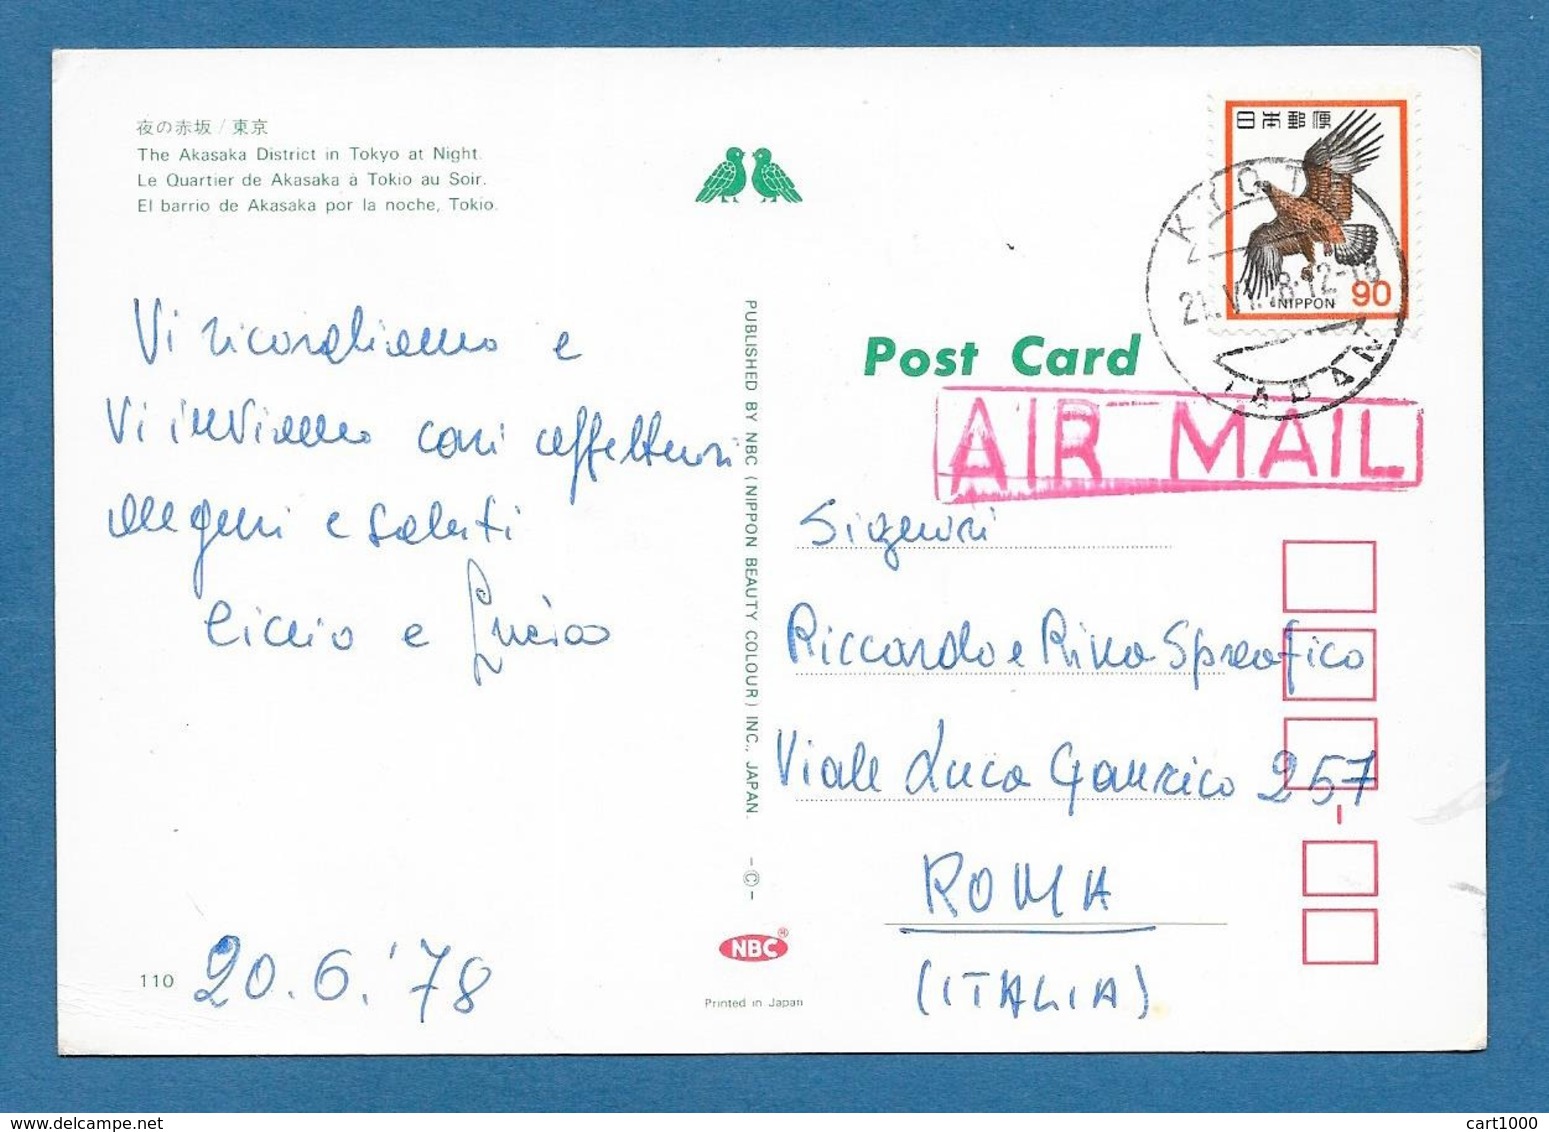 夜の赤坂 / 東京
The Akasaka District in Tokyo at Night.
Le Quartier de Akasaka à Tokio au Soir.
El barrio de Akasaka por la noche, Tokio.
日本郵便
NIPPON 90
KYOTO
21.VI.78.12-18
JAPAN
Post Card
AIR MAIL
Vi ricordiamo e
Vi inviamo cari affettuosi
auguri e saluti
Ciccio e
20.6.'78
110
PUBLISHED BY NBC (NIPPON BEAUTY COLOUR) INC., JAPAN. -©-
NBC ®
Printed in Japan
Signori
Riccardo e Rina Spreafico
Viale Luca Gaurico 257
ROMA
(ITALIA)
cart1000